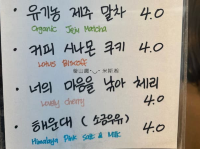 · 유기농 제주 말차 4.0
Organic Jeju Matcha
· 커피 시나몬 쿠키 4.0
Lotus Biscoff
· 너의 마음을 낚아 체리 4.0
Lovely cherry
· 해운대 (소금우유) 4.0
Himalaya Pink Salt & Milk